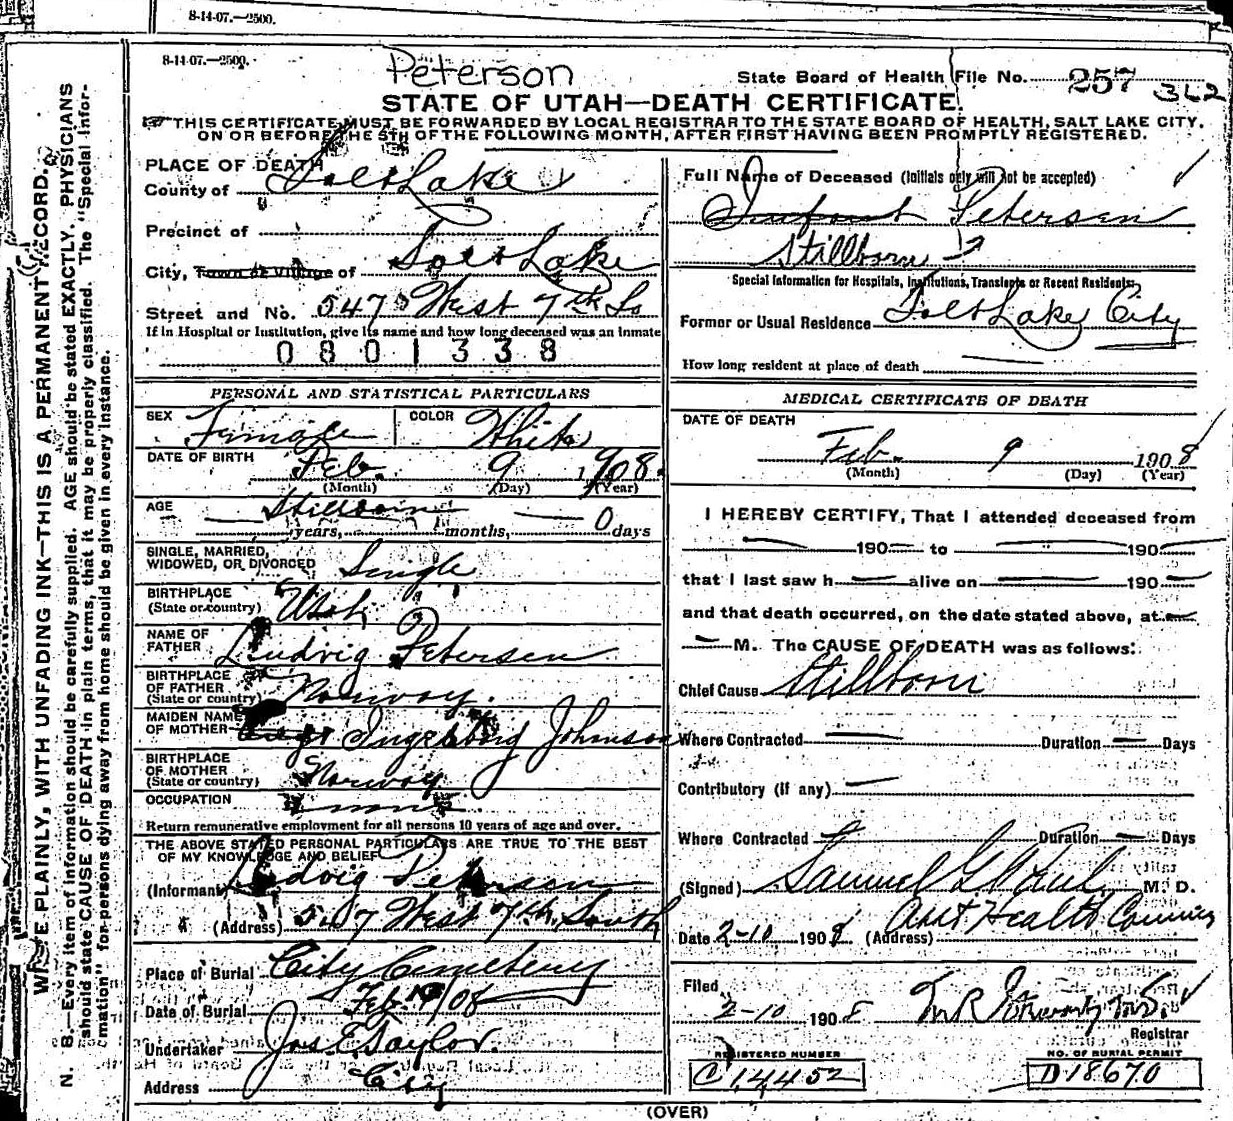 8-14-07.—2500.
8-14-07.—2500.
Peterson
State Board of Health File No. 257 362
STATE OF UTAH—DEATH CERTIFICATE.
THIS CERTIFICATE MUST BE FORWARDED BY LOCAL REGISTRAR TO THE STATE BOARD OF HEALTH, SALT LAKE CITY,
ON OR BEFORE THE 5TH OF THE FOLLOWING MONTH, AFTER FIRST HAVING BEEN PROMPTLY REGISTERED.
WRITE PLAINLY, WITH UNFADING INK—THIS IS A PERMANENT RECORD.
N. B.—Every item of information should be carefully supplied. AGE should be stated EXACTLY. PHYSICIANS
should state CAUSE OF DEATH in plain terms, that it may be properly classified. The "Special Infor-
mation" for persons dying away from home should be given in every instance.
PLACE OF DEATH
County of Salt Lake
Precinct of
City, Town or Village of Salt Lake
Street and No. 547 West 7th So
If in Hospital or Institution, give its name and how long deceased was an inmate
0801338
PERSONAL AND STATISTICAL PARTICULARS
SEX Female COLOR White
DATE OF BIRTH Feb. 9 1908.
(Month) (Day) (Year)
AGE Stillborn
years, months, 0 days
SINGLE, MARRIED,
WIDOWED, OR DIVORCED Single
BIRTHPLACE
(State or country) Utah
NAME OF
FATHER Ludvig Petersen
BIRTHPLACE
OF FATHER
(State or country) Norway.
MAIDEN NAME
OF MOTHER Ingeborg Johnson
BIRTHPLACE
OF MOTHER
(State or country) Norway
OCCUPATION none
Return remunerative employment for all persons 10 years of age and over.
THE ABOVE STATED PERSONAL PARTICULARS ARE TRUE TO THE BEST
OF MY KNOWLEDGE AND BELIEF
(Informant) Ludvig Petersen
(Address) 547 West 7th South
Place of Burial City Cemetery
Date of Burial Feb /08
Undertaker Jos E Taylor.
Address City
Full Name of Deceased (Initials only will not be accepted)
Infant Petersen
Stillborn
Special Information for Hospitals, Institutions, Transients or Recent Residents:
Former or Usual Residence Salt Lake City
How long resident at place of death
MEDICAL CERTIFICATE OF DEATH
DATE OF DEATH
Feb. 9 1908
(Month) (Day) (Year)
I HEREBY CERTIFY, That I attended deceased from
190 to 190
that I last saw h alive on 190
and that death occurred, on the date stated above, at
M. The CAUSE OF DEATH was as follows:
Chief Cause Stillborn
Where Contracted Duration Days
Contributory (if any)
Where Contracted Duration Days
(Signed) Samuel G. M. D.
Date 2-10 1908 (Address) Asst Health
Filed
2-10 1908
Registrar
REGISTERED NUMBER NO. OF BURIAL PERMIT
C 14452 D 18670
(OVER)